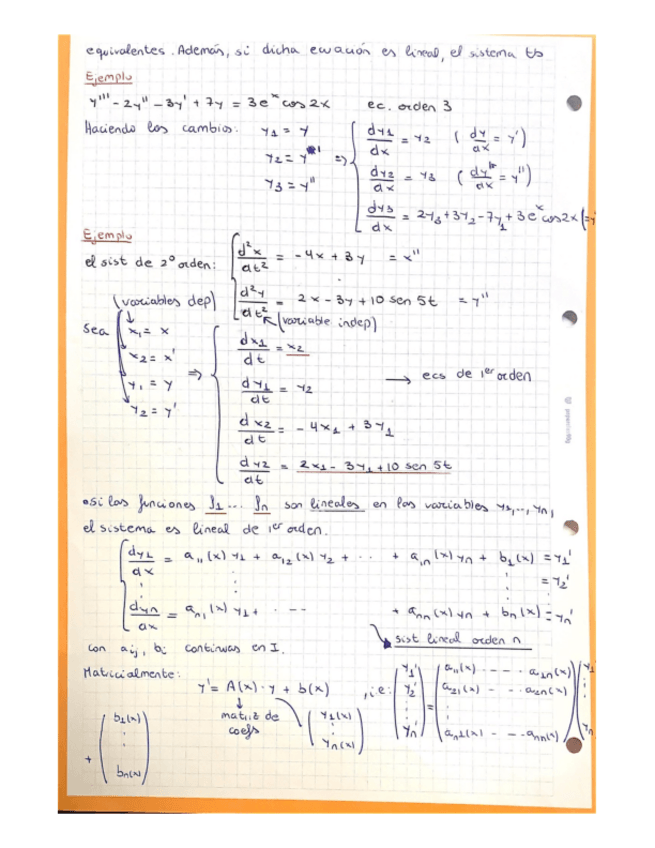 equivalentes. Además, si dicha ecuación es lineal, el sistema tb
Ejemplo
y''' - 2y'' - 3y' + 7y = 3e^x cos 2x    ec. orden 3
Haciendo los cambios: y1 = y
y2 = y'
y3 = y''
=> { dy1/dx = y2 (dy/dx = y')
dy2/dx = y3 (dy'/dx = y'')
dy3/dx = 2y3 + 3y2 - 7y1 + 3e^x cos 2x (= y
Ejemplo
el sist de 2º orden: { d²x/dt² = -4x + 3y = x''
d²y/dt² = 2x - 3y + 10 sen 5t = y''
(variables dep)
(variable indep)
Sea { x1 = x
x2 = x'
y1 = y
y2 = y'
=> { dx1/dt = x2
dy1/dt = y2 → ecs de 1er orden
dx2/dt = -4x1 + 3y1
dy2/dt = 2x1 - 3y1 + 10 sen 5t
•si las funciones f1 ... fn son lineales en las variables y1,..., yn,
el sistema es lineal de 1er orden.
{ dy1/dx = a11(x) y1 + a12(x) y2 + ... + a1n(x) yn + b1(x) = y1'
: : : = y2'
dyn/dx = an1(x) y1 + --- + ann(x) yn + bn(x) = yn'
sist lineal orden n
con aij, bi continuas en I.
Matricialmente:
y' = A(x)·y + b(x)
matriz de coefs
(y1(x) : yn(x))
, i.e: (y1' y2' : yn') = (a11(x) - - - a1n(x)
a21(x) - - a2n(x)
:
an1(x) - - ann(x)) (y1 : yn
+ (b1(x) : bn(x))